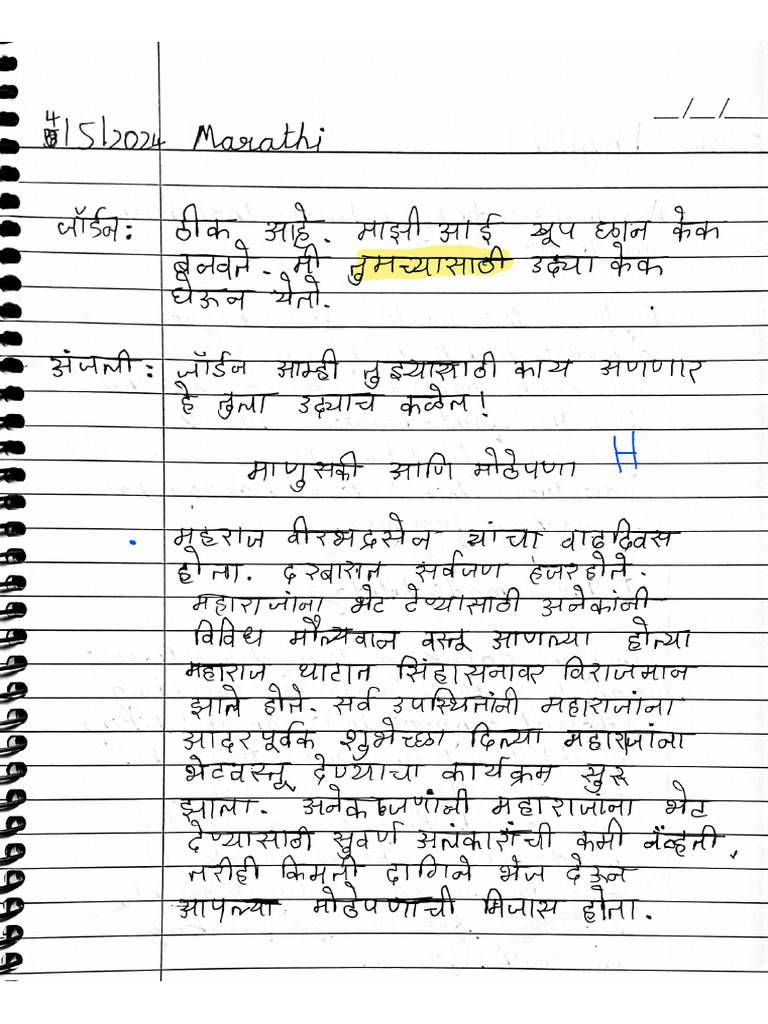 _/_/_
4/5/2024 Marathi
जॉर्डन: ठीक आहे. माझी आई खूप छान केक
बनवते. मी तुमच्यासाठी उद्या केक
घेऊन येतो.
अंजली: जॉर्डन आम्ही तुझ्यासाठी काय अणणार
हे तुला उद्याच कळेल!
माणुसकी आणि मोठेपणा H
महराज वीरभद्रसेन यांचा वाढदिवस
होता. दरबारात सर्वजण हजर होते.
महाराजांना भेट देण्यासाठी अनेकांनी
विविध मौल्यवान वस्तू आणल्या होत्या
महाराज थाटात सिंहासनावर विराजमान
झाले होते. सर्व उपस्थितांनी महाराजांना
आदरपूर्वक शुभेच्छा दिल्या महाराजांना
भेटवस्तू देण्याचा कार्यक्रम सुरू
झाला. अनेक जणांनी महाराजांना भेट
देण्यासाठी सुवर्ण अलंकारांची कमी नव्हती,
तरीही किमती दागिने भेज देऊन
आपल्या मोठेपणाची मिजास होता.